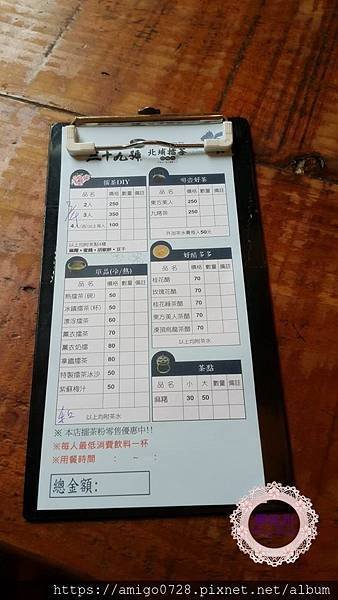 二十九號 北埔擂茶
擂茶DIY
品名 價格 數量 備註
2人 250
3人 350
4人(含以上)每人 100
以上均附茶點4種
單品(冷/熱)
品名 價格 數量 備註
熱擂茶(碗) 50
冰鎮擂茶(杯) 50
漂浮擂茶 60
薰衣擂茶 80
薰衣奶擂 80
拿鐵擂茶 80
特製擂茶冰沙 50
紫蘇梅汁 50
以上均附茶水
品名 價格 數量 備註
東方美人 250
九降茶 250
外加茶水費每人50元
好醋多多
品名 價格 數量 備註
桂花醋 70
玫瑰花醋 70
桂花綠茶醋 70
東方美人茶醋 70
凍頂烏龍茶醋 70
以上均附茶水
茶點
品名 小 大 數量 備註
麻糬 30 50
※本店擂茶粉零售優惠中!!
※每人最低消費飲料一杯
※用餐時間 : - :
總金額:
https://amigo0728.pixnet.net/album